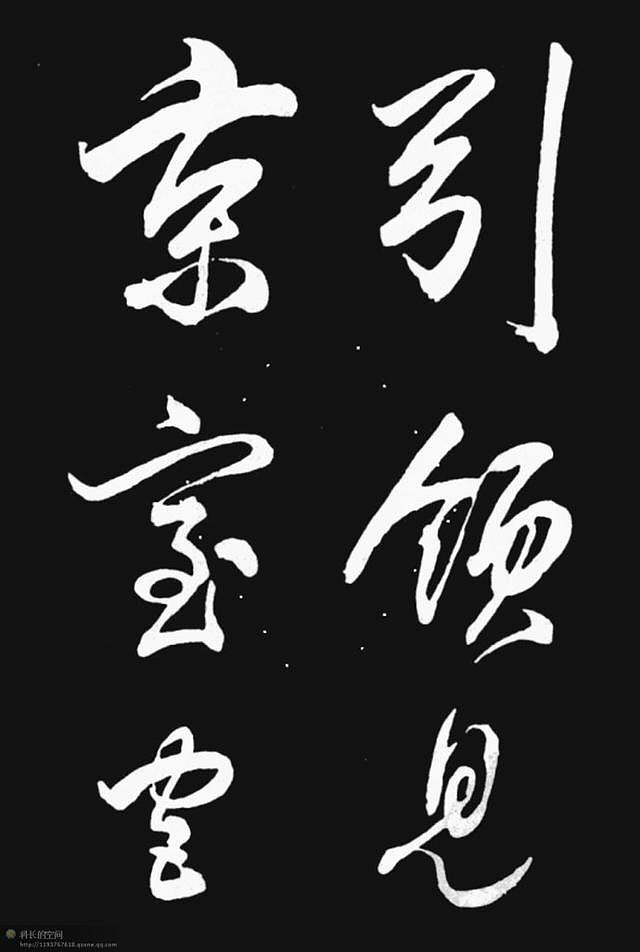 引领见
京室宫
科长的空间
http://1193767618.qzone.qq.com